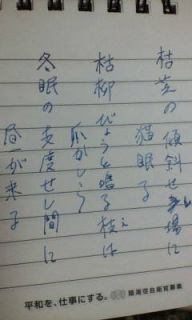 枯芝の傾斜せし場に
猫眠る
枯柳びょうと鳴る枝は
爪かしら
冬眠の支度せし間に
昼が来る
平和を、仕事にする。陸海空自衛官募集